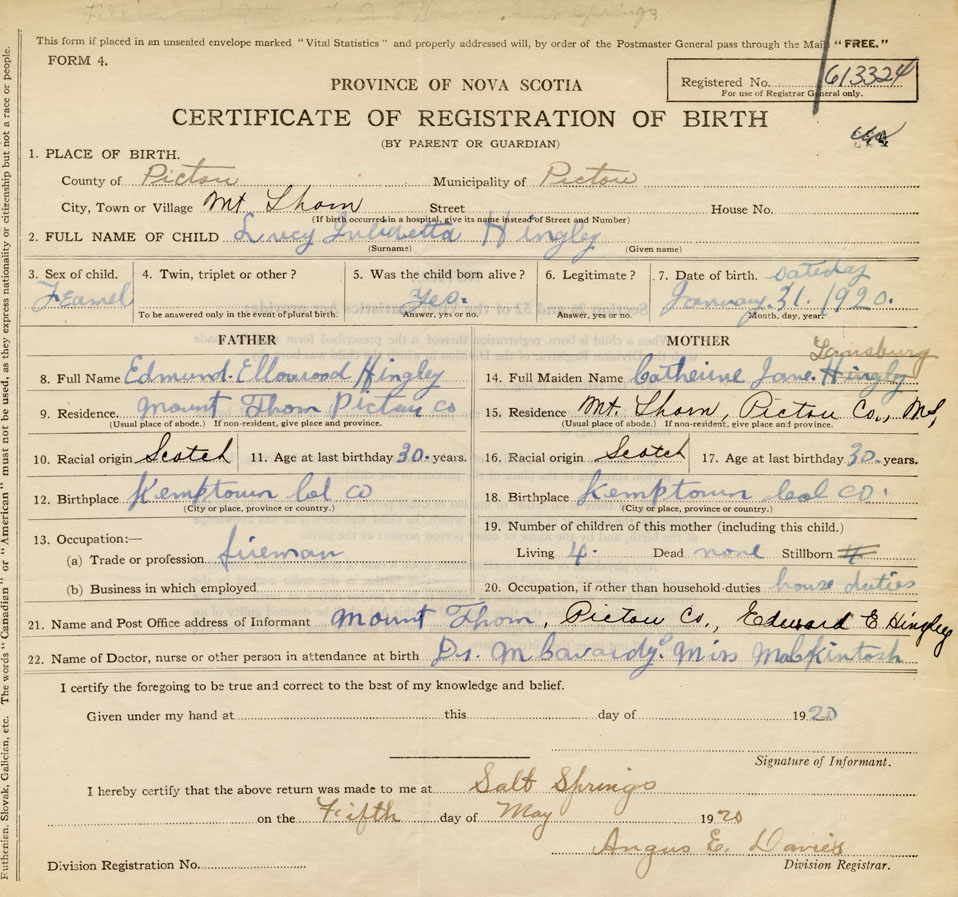 Salt Springs
This form if placed in an unsealed envelope marked "Vital Statistics" and properly addressed will, by order of the Postmaster General pass through the Mails "FREE."
FORM 4.
PROVINCE OF NOVA SCOTIA
Registered No. 613324
For use of Registrar General only.
CERTIFICATE OF REGISTRATION OF BIRTH
(BY PARENT OR GUARDIAN)
1. PLACE OF BIRTH.
County of Pictou Municipality of Pictou
City, Town or Village Mt Thom Street House No.
(If birth occurred in a hospital, give its name instead of Street and Number)
2. FULL NAME OF CHILD Lucy Hingley
(Surname) (Given name)
3. Sex of child. 4. Twin, triplet or other? 5. Was the child born alive? 6. Legitimate? 7. Date of birth. Sateday
Feamel Yes. January. 31. 1920.
To be answered only in the event of plural birth. Answer, yes or no. Answer, yes or no. Month, day, year.
FATHER MOTHER
8. Full Name Edmund. Ellowood Hingley
9. Residence. Mount Thom Pictou Co
(Usual place of abode.) If non-resident, give place and province.
10. Racial origin Scotch 11. Age at last birthday 30. years.
12. Birthplace Kemptown Col Co
(City or place, province or country.)
13. Occupation:—
(a) Trade or profession fireman
(b) Business in which employed
14. Full Maiden Name Catherine Jane. Hingley
15. Residence Mt. Thom, Pictou Co., N.S,
(Usual place of abode.) If non-resident, give place and province.
16. Racial origin Scotch 17. Age at last birthday 30. years.
18. Birthplace Kemptown Col Co.
(City or place, province or country.)
19. Number of children of this mother (including this child.)
Living 4. Dead none Stillborn
20. Occupation, if other than household-duties house duties
21. Name and Post Office address of Informant Mount Thom, Pictou Co., Edward E Hingley
22. Name of Doctor, nurse or other person in attendance at birth Dr. Miss
I certify the foregoing to be true and correct to the best of my knowledge and belief.
Given under my hand at this day of 1920
Signature of Informant.
I hereby certify that the above return was made to me at Salt Springs
on the Fifth day of May 1920
Angus E. Davies
Division Registration No. Division Registrar.
Ruthenian, Slovak, Galician, etc. The words "Canadian" or "American" must not be used, as they express nationality or citizenship but not a race or people.